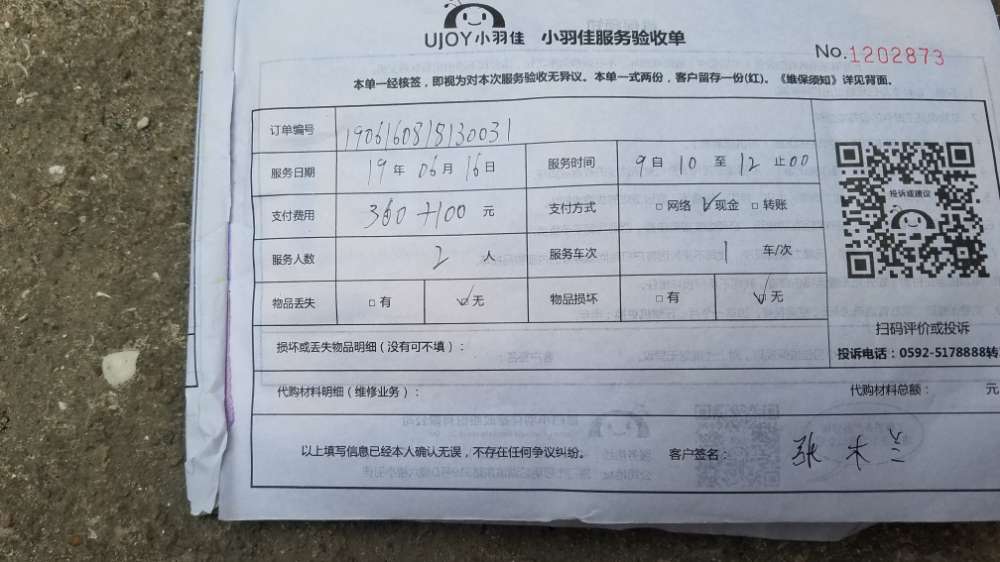 UJOY小羽佳 小羽佳服务验收单
No.1202873
本单一经核签，即视为对本次服务验收无异议。本单一式两份，客户留存一份(红)。《维保须知》详见背面。
订单编号 1906160818130031
服务日期 19年 06月 16日 服务时间 9自 10至 12止00
支付费用 360+100元 支付方式 □网络 ☑现金 □转账
服务人数 2人 服务车次 1车/次
投诉或建议
物品丢失 □有 ☑无 物品损坏 □有 ☑无
扫码评价或投诉
损坏或丢失物品明细（没有可不填）：
投诉电话：0592-5178888转
代购材料明细（维修业务）： 代购材料总额： 元
以上填写信息已经本人确认无误，不存在任何争议纠纷。 客户签名： 张木兰